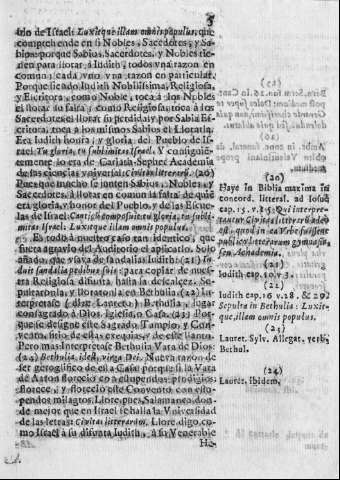 5
blo de Israel: Luxitque illam omnis populus, que
comprehende en si Nobles, Sacerdotes, y Sa-
bios: porque Sabios, Sacerdotes, y Nobles tie-
nen para llorar à Iudith, todos vna razon en
comun; cada vno vna razon en particular.
Porque siendo Iudith Nobilissima, Religiosa,
y Escritora, como Noble, toca à los Nobles
el llorar su falta; como Religiosa, toca à los
Sacerdotes el llorar su perdida; y por Sabia Es-
critora, toca à los mismos Sabios el llorarla.
Era Iudith honra, y gloria del Pueblo de Is-
rael: Tu gloria, tu sublimitas Israel. Y consigui-
entemente lo era de Cariath-Sepher Academia
de las ciencias vniversal: Civitas litterarum. (20)
Pues que mucho se junten Sabios, Nobles, y
Sacerdotes, à llorar en comun la falta de quie
era gloria, y honor del Pueblo, y de las Escue-
las de Israel:
mitas Israel. Luxitque illam omnis populus.
Es todo à nuestro caso tan identico, que
fuera agravio del Auditorio el aplicarlo. Solo
añado, que vsava de sandalias Iudith: (21) In-
duit sandalia pedibus suis: para copiar de nues-
tra Religiosa difunta hasta lo descalço. Se-
pultaronla, y lloraronla en Bethulia (22) Inter-
terpretase (dize Laureto) Bethulia, lugar
consagrado à Dios, Iglesia, ò Casa. (23) Por-
que se designe este Sagrado Templo, y Con-
vento, sitio de estas exequias, y de este llanto.
Pero mas: Interpretase Bethulia Vara de Dios:
(24) Bethulia, idest, virga Dei. Nueva razon de
ser geroglifico de esta Casa: porque si la Vara
de Aaron florecio en estupendos prodigios:
florece, y florecio este Convento con estu-
pendos milagros. Llore, pues, Salamanca, don-
de mejor que en Israel se halla la Vniversidad
de las letras: Civitas litterarum. Llore, digo, co-
mo Israel à su difunta Iudith, à su Venerable
(20)
Haye in Biblia maxima in
concord. litteral. ad Iosue
cap. 15. v. 15. Qui interpre-
tantur Civitas litterarū ideo
est, quod in ea Vrbe fuissent
publicū litterarum gymnasiū,
seu Academia.
(21)
Iudith cap. 10. v 3.
(22)
Iudith cap. 16 v. 28. & 29.
Sepulta in Bethulia: Luxit-
que, illam omnis populus.
(23)
Lauret. Sylv. Allegat. verb.
Bethul.
(24)
Lauret. Ibidem.